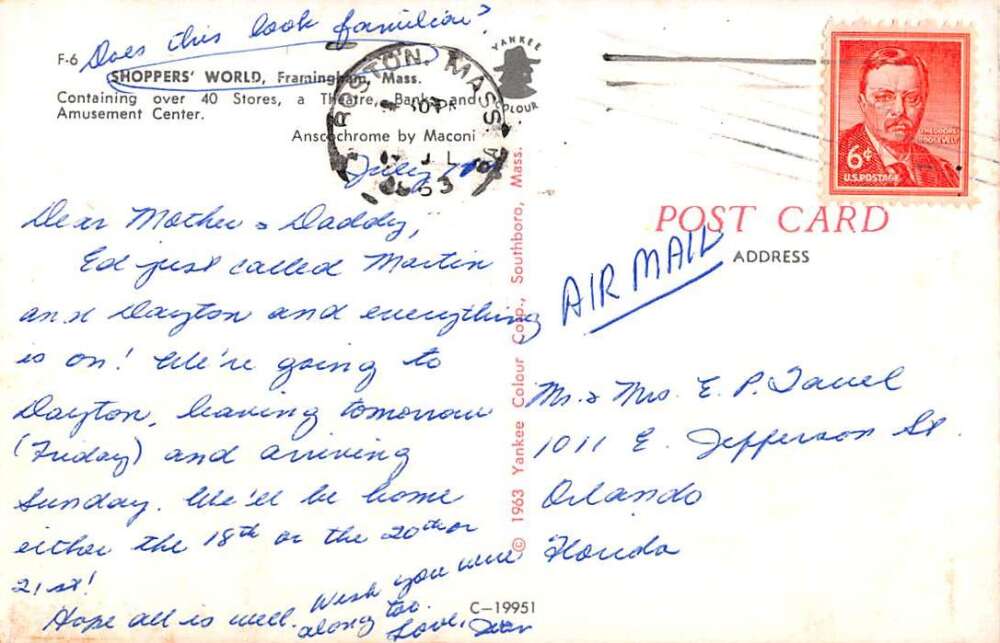 Does this look familiar?
F-6
SHOPPERS' WORLD, Framingham, Mass.
Containing over 40 Stores, a Theatre, Banks and
Amusement Center.
Anscochrome by Maconi
YANKEE
COLOUR
BOSTON, MASS.
JUL
1963
July
Dear Mother & Daddy,
Ed just called Martin
and Dayton and everything
is on! We're going to
Dayton, leaving tomorrow
(Friday) and arriving
Sunday. We'll be home
either the 18th or the 20th or
21st!
Hope all is well. Wish you were
along too.
Love,
© 1963 Yankee Colour Corp., Southboro, Mass.
C-19951
THEODORE
ROOSEVELT
6¢
U.S. POSTAGE
POST CARD
ADDRESS
AIR MAIL
Mr. & Mrs. E. P.
1011 E. Jefferson St.
Orlando
Florida